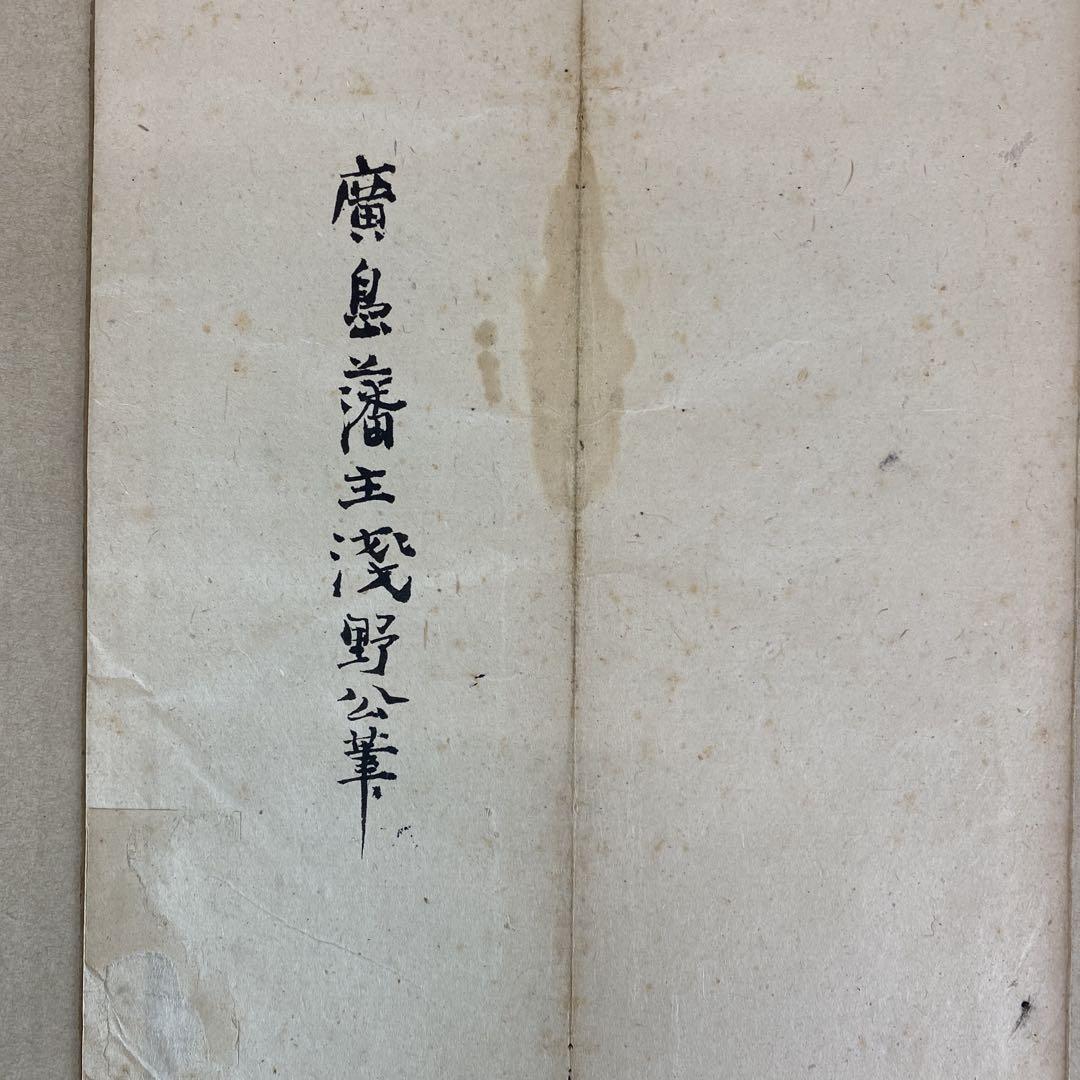 廣島藩主淺野公筆